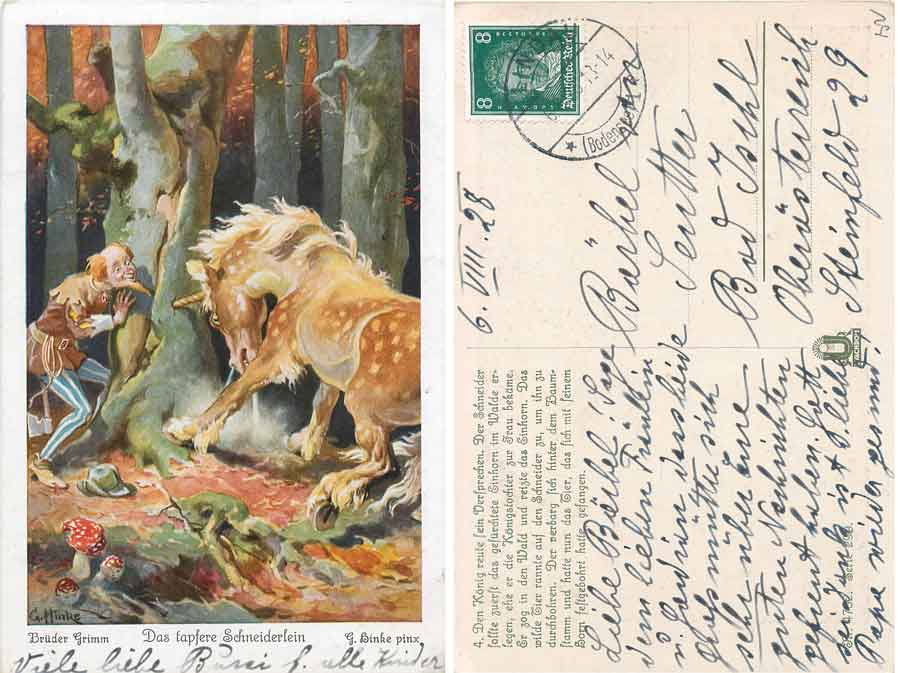 G. Hinke
Brüder Grimm Das tapfere Schneiderlein G. Hinke pinx.
Viele liebe Bussi f. alle Kinder
8 BEETHOVEN 8
Deutsches Reich
(Bodensee)
6. VIII. 28
Bärbel
Bad Ischl
Oberösterreich
Steinfeld 29
4. Den König reute sein Versprechen. Der Schneider
sollte zuerst das gefürchtete Einhorn im Walde er-
legen, ehe er die Königstochter zur Frau bekäme.
Er zog in den Wald und reizte das Einhorn. Das
wilde Tier rannte auf den Schneider zu, um ihn zu
durchbohren. Der verbarg sich hinter dem Baum-
stamm, und hatte nun das Tier, das sich mit seinem
Horn festgebohrt hatte, gefangen.
Liebe Bärbel! Sage
dem lieben Fräulein
dass beide
mütter sich
sehr über ihre
guten Nachrichten
gefreut haben. Gott
sei Dank ist d. liebe
Papa wieder gesund.